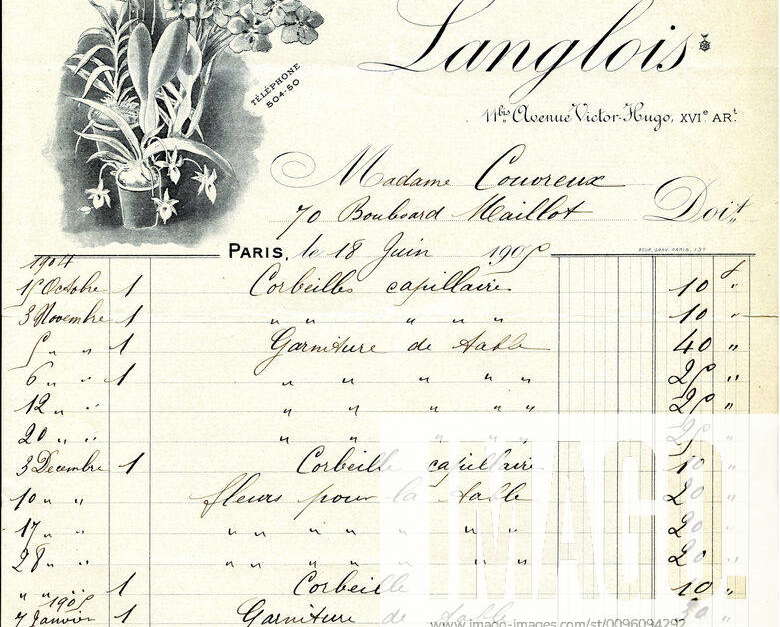 Langlois
TÉLÉPHONE
504-50
11bis Avenue Victor-Hugo, XVIe ARt
Madame Couvreux
70 Boulevard Maillot Doit
PARIS, le 18 Juin 1905
1904
15 Octobre 1 Corbeilles capillaire 10 "
3 Novembre 1 " " " " " 10 "
5 " " 1 Garniture de table 40 "
6 " " 1 " " " " " 25 "
12 " " " " " " " 25 "
20 " " " " " " " 25
3 Decembre 1 Corbeille capillaire 10 "
10 " " fleurs pour la table 20 "
17 " " " " " " " " 20 "
28 " " " " " " " " 20 "
" " " 1 Corbeille 10 "
1905
7 Janvier 1 Garniture de table 30 "
IMAGO
www.imago-images.com/st/0096094292